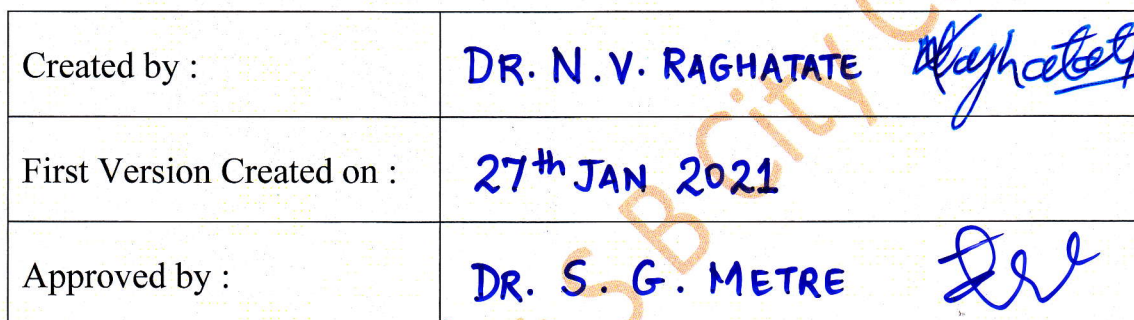 Created by : DR. N.V. RAGHATATE Raghatate
First Version Created on : 27th JAN 2021
Approved by : DR. S. G. METRE
S B City C